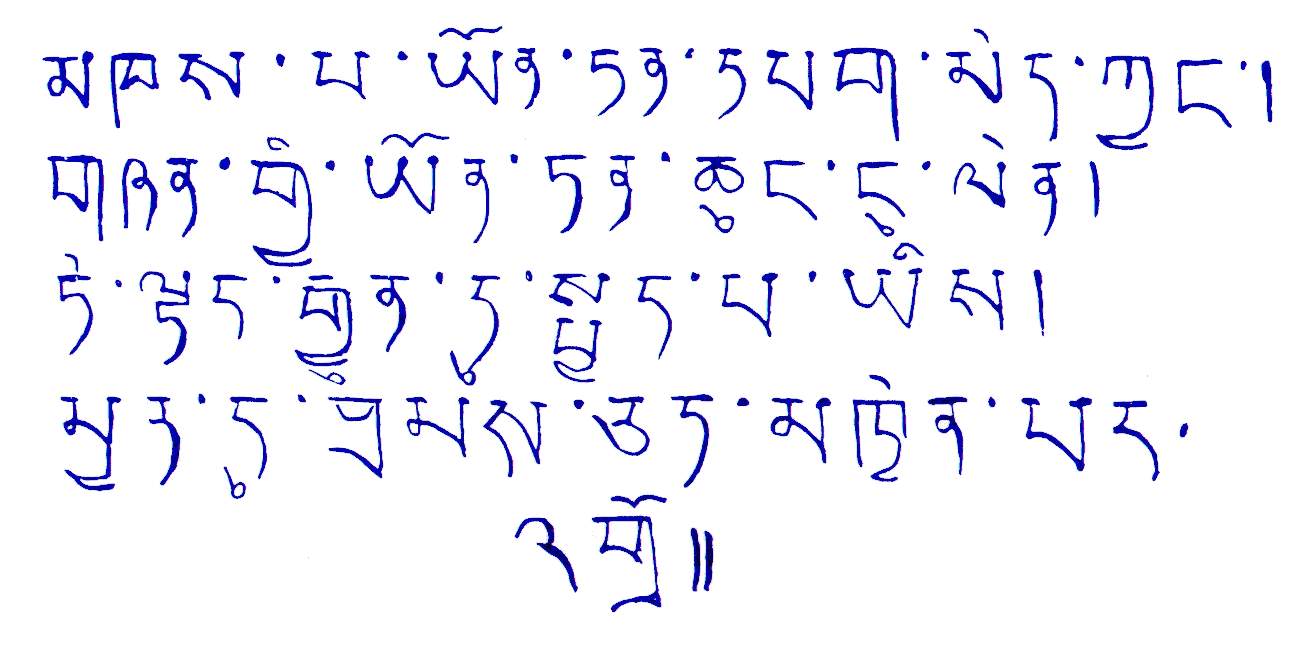 མཁས་པ་ཡོན་ཏན་དཔག་མེད་ཀྱང་།
གཞན་གྱི་ཡོན་ཏན་ཆུང་ངུ་ལེན།
དེ་ལྟར་རྒྱུན་དུ་སྤྱད་པ་ཡིས།
མྱར་དུ་ཐམས་ཅད་མཁྱེན་པར་
འགྲོ༎